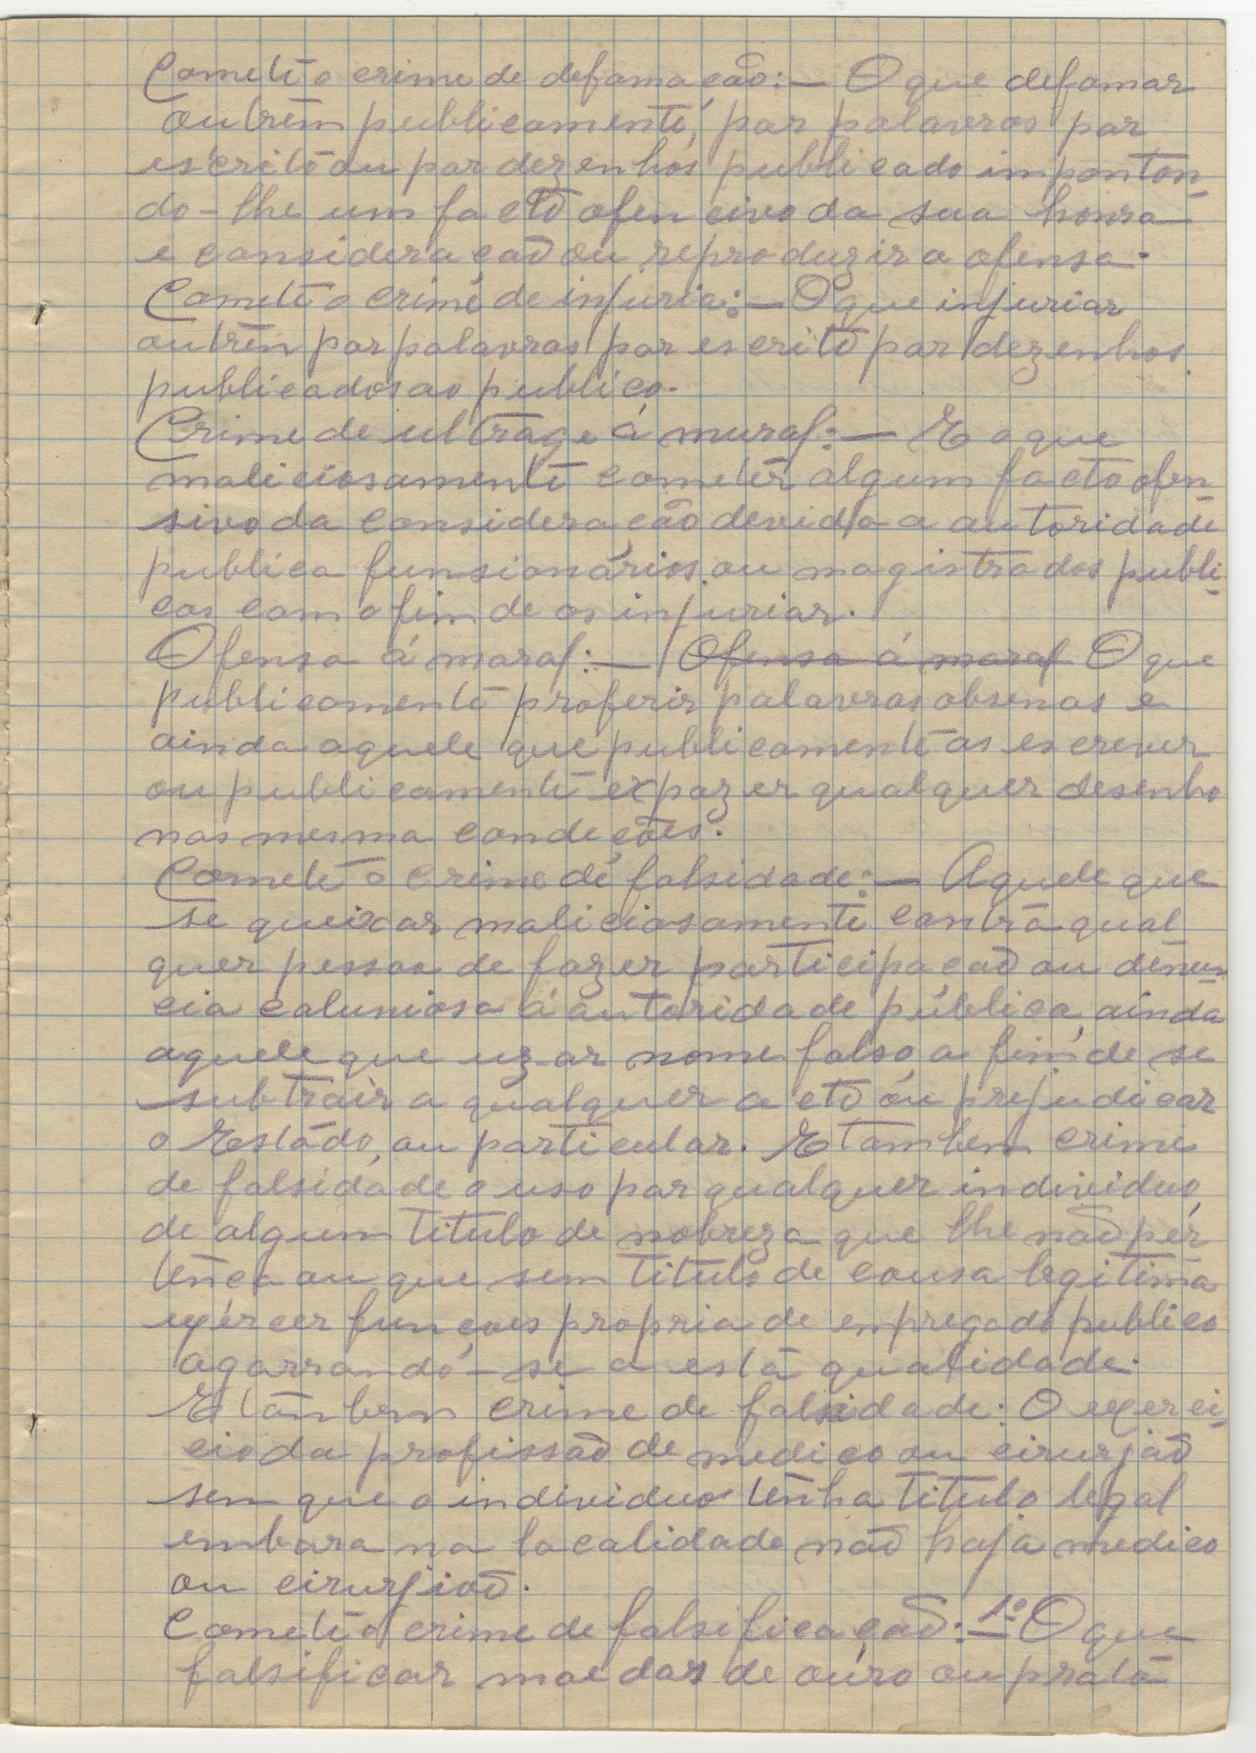 Cometê o crime de defamação:— O que defamar
outrem publicamente, por palavras por
escrito ou por dezenhos publicado imponton-
do-lhe um facto ofencivo da sua honra
e consideração ou reproduzir a ofensa.
Cometê o crime de injuria:— O que injuriar
outrem por palavras por escrito por dezenhos
publicados ao publico.
Crime de ultrage á mural:— E o que
maliciosamente cometer algum facto ofen
sivo da consideração devida a autoridade
publica funsionários ou magistrados publi-
cos com o fim de os injuriar.
Ofensa á moral:— Ofensa á moral O que
publicamente proferir palavras obsenas e
ainda aquele que publicamente as escrever
ou publicamente expozer qualquer desenho
nas mesma condeções.
Cometê o crime de falsidade:— Aquele que
se queixar maliciosamente contra qual
quer pessoa de fazer participação ou denun
cia caluniosa á autoridade pública, ainda
aquele que uzar nome falso a fim de se
subtrair a qualquer acto ou prejudicar
o Estado, ou particular. E tambem crime
de falsidade o uso por qualquer individuo,
de algum titulo de nobreza que lhe não per
tença ou que sem titulo de cousa legitima
exércer funções propria de empregado publico
agarrando-se a esta qualidade.
E tambem crime de falsidade: O exerci-
cio da profissão de medico ou cirurjão
sem que o individuo tenha titulo legal
embora na localidade não haja medico
ou cirurjião.
Cometê o crime de falsificação:— 1º O que
falsificar moedas de ouro ou prata